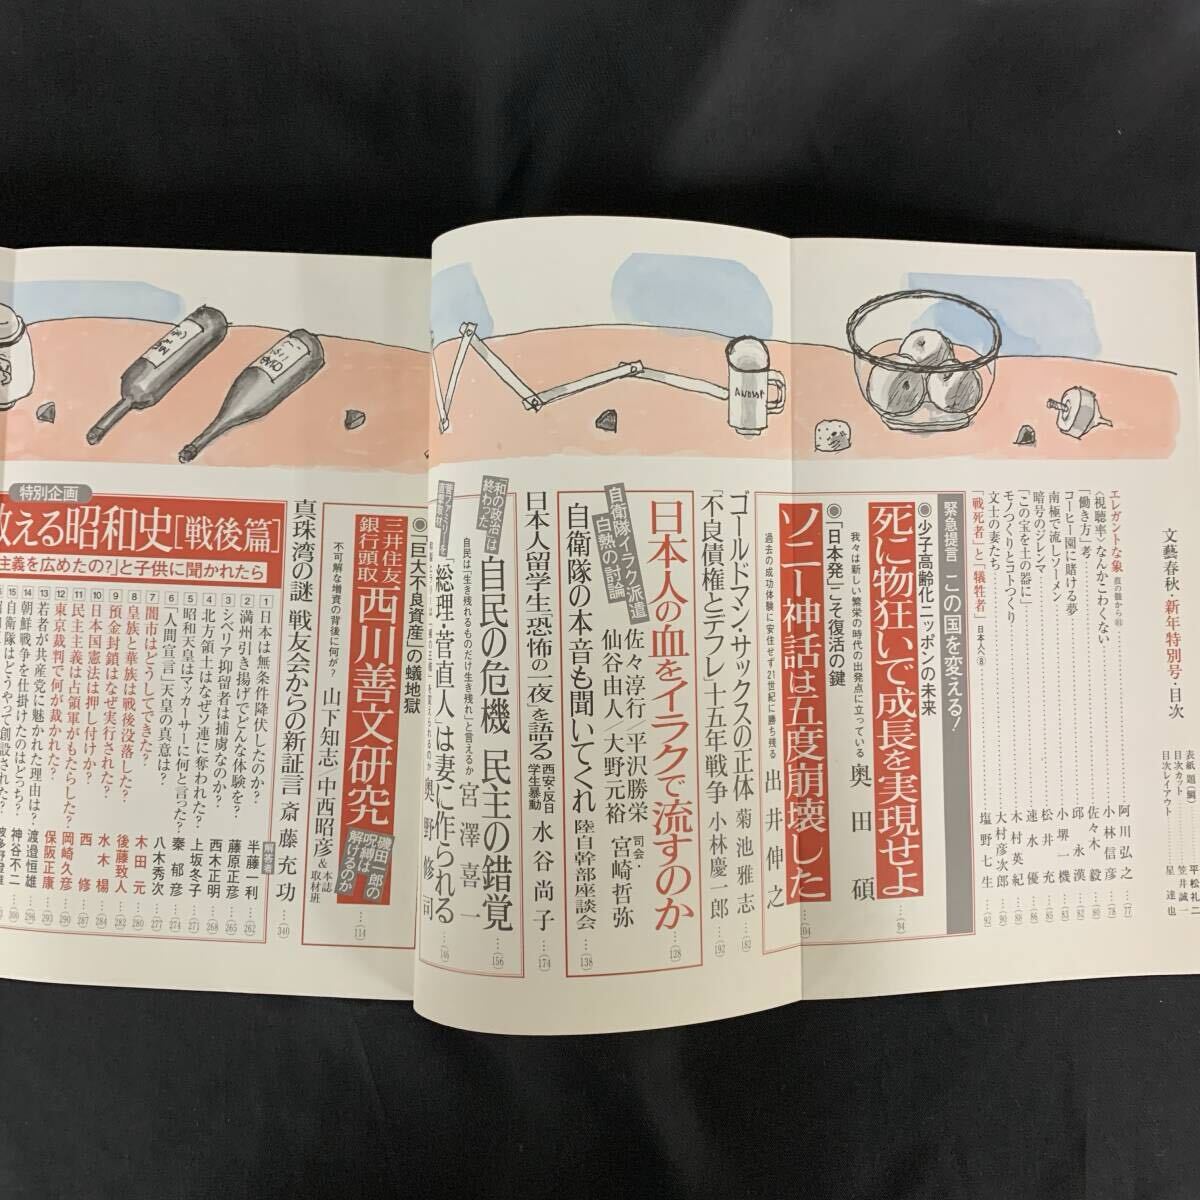 文藝春秋・新年特別号・目次
表紙 題(鯛) 平松礼二
目次カット 笠井誠一
目次レイアウト 星達也
エレガントな象 阿川弘之 (77)
〈視聴率〉なんかこわくない 小林信彦 (78)
「働き方」考 佐々木毅 (80)
コーヒー園に賭ける夢 邱永漢 (82)
南極で流しソーメン 小堺一機 (83)
暗号のジレンマ 松井充 (85)
「この宝を土の器に」 速水優 (86)
モノづくりとコトつくり 木村英紀 (88)
文士の妻たち 大村彦次郎 (90)
「戦死者」と「犠牲者」 日本人へ⑧ 塩野七生 (92)
緊急提言 この国を変える!
●少子高齢化ニッポンの未来
死に物狂いで成長を実現せよ
我々は新しい繁栄の時代の出発点に立っている 奥田碩 (94)
●「日本発」こそ復活の鍵
ソニー神話は五度崩壊した
過去の成功体験に安住せず21世紀に勝ち残る 出井伸之 (104)
ゴールドマン・サックスの正体 菊池雅志 (182)
「不良債権とデフレ」十五年戦争 小林慶一郎 (192)
日本人の血をイラクで流すのか (128)
自衛隊イラク派遣 白熱の討論
佐々淳行/平沢勝栄
仙谷由人/大野元裕
司会・宮崎哲弥
自衛隊の本音も聞いてくれ 陸自幹部座談会 (138)
日本人留学生恐怖の一夜」を語る 西安・反日学生暴動 水谷尚子 (174)
和の政治は終わった
自民の危機 民主の錯覚 (156)
自民は「生き残れるものだけ生き残れ」と言えるか 宮澤喜一
「総理・菅直人」は妻に作られる 奥野修司 (146)
●「巨大不良資産」の蟻地獄
三井住友銀行頭取 西川善文研究 (114)
磯田一郎の呪縛は解けるのか
不可解な増資の背後に何が? 山下知志/中西昭彦&本誌取材班
真珠湾の謎 戦友会からの新証言 斎藤充功 (340)
特別企画
教える昭和史[戦後篇]
主義を広めたの?」と子供に聞かれたら
解答者
1 日本は無条件降伏したのか? 半藤一利 (262)
2 満州引き揚げでどんな体験を? 藤原正彦 (265)
3 シベリア抑留者は捕虜なのか? 西木正明 (268)
4 北方領土はなぜソ連に奪われた? 上坂冬子 (271)
5 昭和天皇はマッカーサーに何と言った? 秦郁彦 (274)
6 「人間宣言」天皇の真意は? 八木秀次 (277)
7 闇市はどうしてできた? 木田元 (280)
8 皇族と華族は戦後没落した? 後藤致人 (282)
9 預金封鎖はなぜ実行された? 楊 (284)
10 日本国憲法は押し付けか? 西修 (287)
11 民主主義は占領軍がもたらした? 水木楊
12 東京裁判で何が裁かれた? 保阪正康 (290)
13 若者が共産党に魅かれた理由は? 岡崎久彦
14 朝鮮戦争を仕掛けたのはどっち? 渡邉恒雄 (296)
15 自衛隊はどうやって創設された? 神谷不二 (300)
ANDSOR